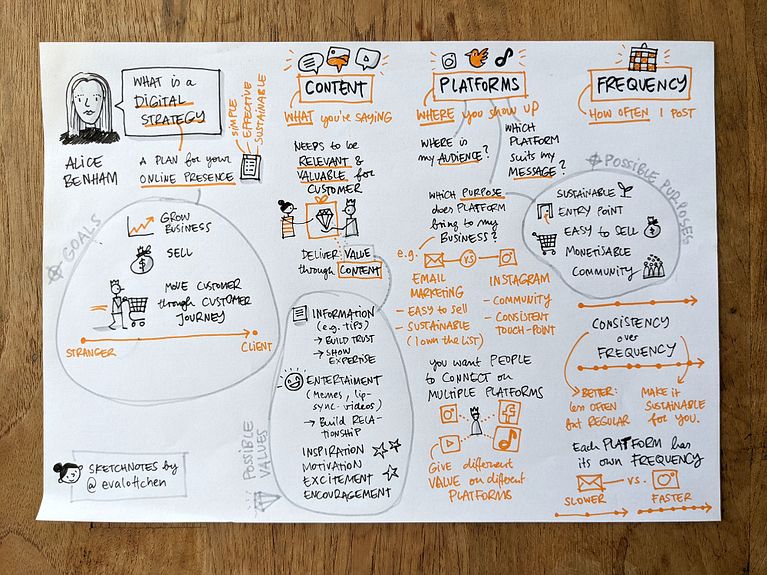 WHAT is a
DIGITAL
STRATEGY
ALICE
BENHAM
A PLAN for your
ONLINE PRESENCE
SIMPLE
EFFECTIVE
SUSTAINABLE
GOALS
GROW
BUSINESS
SELL
MOVE CUSTOMER
through CUSTOMER
JOURNEY
STRANGER
CLIENT
SKETCHNOTES by
@evalottchen
CONTENT
WHAT you're SAYING
NEEDS to be
RELEVANT &
VALUABLE for
CUSTOMER
DELIVER VALUE
through CONTENT
INFORMATION
(e.g. tips)
→ BUILD TRUST
→ SHOW
EXPERTISE
ENTERTAIMENT
(Memes, lip-
sync-videos)
→ Build RELA-
TIONSHIP
INSPIRATION
MOTIVATION
EXCITEMENT
ENCOURAGEMENT
POSSIBLE
VALUES
PLATFORMS
WHERE you show up
WHERE is
my AUDIENCE?
WHICH
PLATFORM
suits my
MESSAGE?
WHICH PURPOSE
does PLATFORM
bring to my
BUSINESS?
e.g.
VS
EMAIL
MARKETING
- EASY to sell
- SUSTAINABLE
(I own the list)
INSTAGRAM
- COMMUNITY
- CONSISTENT
TOUCH-POINT
you want PEOPLE
to CONNECT on
MULTIPLE PLATFORMS
GIVE different
VALUE on different
PLATFORMS
FREQUENCY
HOW OFTEN I POST
POSSIBLE PURPOSES
SUSTAINABLE
ENTRY POINT
EASY to SELL
MONETISABLE
COMMUNITY
CONSISTENCY
over
FREQUENCY
BETTER:
less OFTEN
but REGULAR
MAKE it
SUSTAINABLE
for YOU.
Each PLATFORM has
its own FREQUENCY
vs.
SLOWER
FASTER